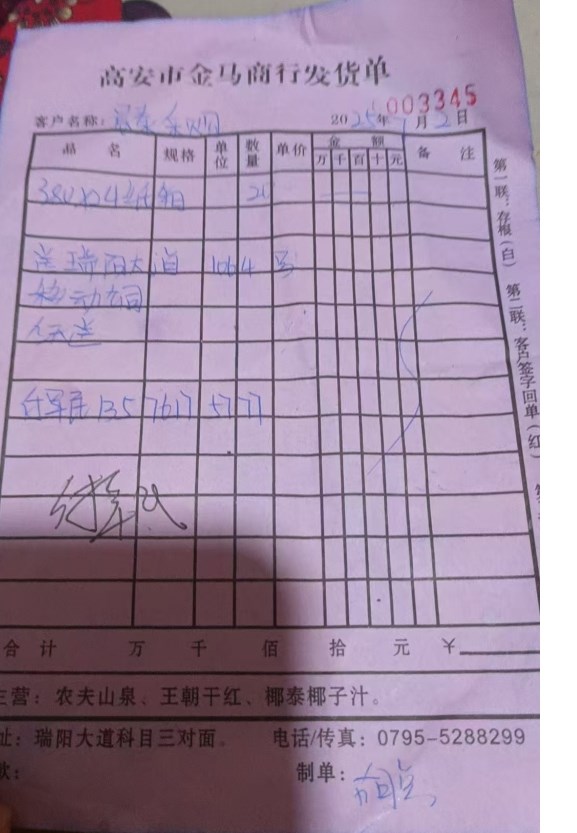 高安市金马商行发货单
003345
客户名称: 2025年 月2日
品名 规格 单位 数量 单价 金额 备注
万千百十元
380X24 箱 20
送瑞阳大道 1064号
移动公司
付军民 135 7617 5777
付军民
合计 万 千 佰 拾 元 ￥
主营：农夫山泉、王朝干红、椰泰椰子汁。
址：瑞阳大道科目三对面。 电话/传真：0795-5288299
制单：
第一联：存根（白） 第二联：客户签字回单（红）